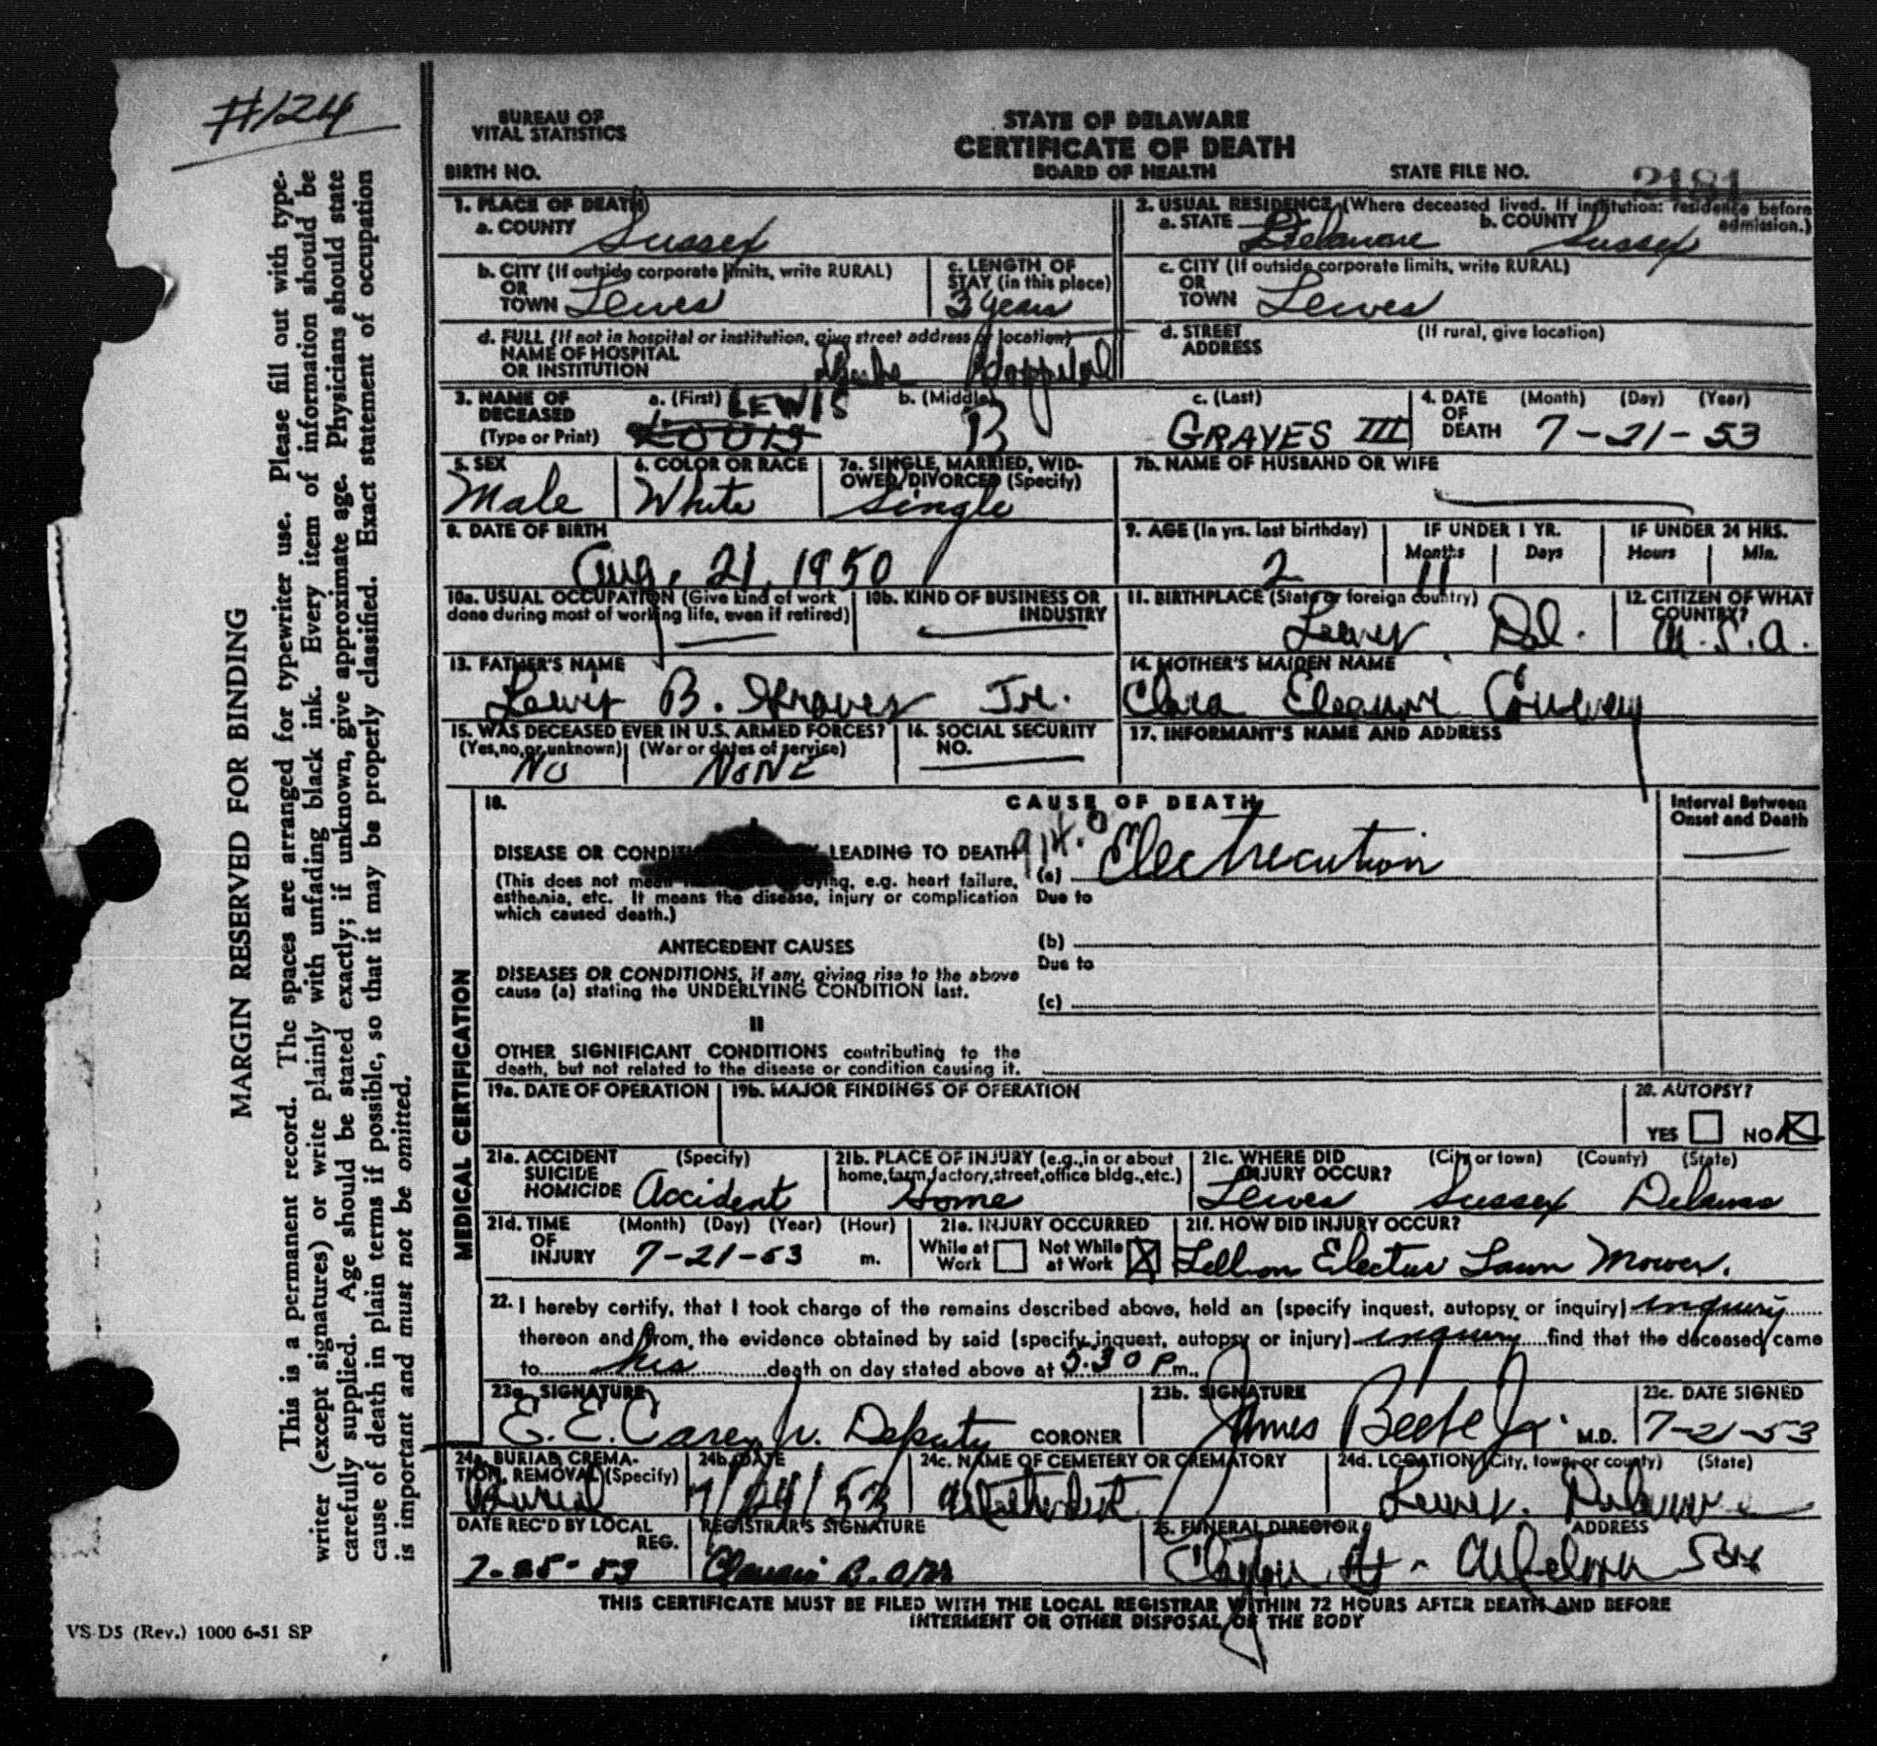 #124
MARGIN RESERVED FOR BINDING
This is a permanent record. The spaces are arranged for typewriter use. Please fill out with type-
writer (except signatures) or write plainly with unfading black ink. Every item of information should be
carefully supplied. Age should be stated exactly; if unknown, give approximate age. Physicians should state
cause of death in plain terms if possible, so that it may be properly classified. Exact statement of occupation
is important and must not be omitted.
VS D5 (Rev.) 1000 6-51 SP
BUREAU OF
VITAL STATISTICS
STATE OF DELAWARE
CERTIFICATE OF DEATH
BIRTH NO.
BOARD OF HEALTH
STATE FILE NO. 2181
1. PLACE OF DEATH
a. COUNTY Sussex
2. USUAL RESIDENCE (Where deceased lived. If institution: residence before
admission.)
a. STATE Delaware b. COUNTY Sussex
b. CITY (If outside corporate limits, write RURAL)
OR
TOWN Lewes
c. LENGTH OF
STAY (in this place)
3 years
c. CITY (If outside corporate limits, write RURAL)
OR
TOWN Lewes
d. FULL (If not in hospital or institution, give street address or location)
NAME OF HOSPITAL
OR INSTITUTION Beebe Hospital
d. STREET (If rural, give location)
ADDRESS
3. NAME OF
DECEASED
(Type or Print)
a. (First) LEWIS
LOUIS
b. (Middle)
B
c. (Last)
GRAVES III
4. DATE
OF
DEATH
(Month) (Day) (Year)
7-21-53
5. SEX
Male
6. COLOR OR RACE
White
7a. SINGLE, MARRIED, WID-
OWED, DIVORCED (Specify)
Single
7b. NAME OF HUSBAND OR WIFE
8. DATE OF BIRTH
Aug. 21, 1950
9. AGE (In yrs. last birthday)
2
IF UNDER 1 YR.
Months Days
11
IF UNDER 24 HRS.
Hours Min.
10a. USUAL OCCUPATION (Give kind of work
done during most of working life, even if retired)
10b. KIND OF BUSINESS OR
INDUSTRY
11. BIRTHPLACE (State or foreign country)
Lewes Del.
12. CITIZEN OF WHAT
COUNTRY?
U.S.A.
13. FATHER'S NAME
Lewis B. Graves Jr.
14. MOTHER'S MAIDEN NAME
Clara Eleanore
15. WAS DECEASED EVER IN U.S. ARMED FORCES?
(Yes, no, or unknown) (War or dates of service)
NO NONE
16. SOCIAL SECURITY
NO.
17. INFORMANT'S NAME AND ADDRESS
MEDICAL CERTIFICATION
18. CAUSE OF DEATH
Interval Between
Onset and Death
DISEASE OR LEADING TO DEATH 914.0
(a) Electrecution
(This does not mean dying, e.g. heart failure,
asthenia, etc. It means the disease, injury or complication
which caused death.)
Due to
ANTECEDENT CAUSES
(b)
Due to
DISEASES OR CONDITIONS, if any, giving rise to the above
cause (a) stating the UNDERLYING CONDITION last.
(c)
II
OTHER SIGNIFICANT CONDITIONS contributing to the
death, but not related to the disease or condition causing it.
19a. DATE OF OPERATION
19b. MAJOR FINDINGS OF OPERATION
20. AUTOPSY?
YES NO X
21a. ACCIDENT (Specify)
SUICIDE
HOMICIDE Accident
21b. PLACE OF INJURY (e.g., in or about
home, farm, factory, street, office bldg., etc.)
Home
21c. WHERE DID (City or town) (County) (State)
INJURY OCCUR?
Lewes Sussex Delaware
21d. TIME (Month) (Day) (Year) (Hour)
OF
INJURY 7-21-53 m.
21e. INJURY OCCURRED
While at Work Not While at Work X
21f. HOW DID INJURY OCCUR?
Fell on Electric Lawn Mower.
22. I hereby certify, that I took charge of the remains described above, held an (specify inquest, autopsy or inquiry) inquiry
thereon and from the evidence obtained by said (specify inquest, autopsy or injury) inquiry find that the deceased came
to his death on day stated above at 5:30 P m.
23a. SIGNATURE
E. E. Carey Jr. Deputy CORONER
23b. SIGNATURE
James Beebe Jr. M.D.
23c. DATE SIGNED
7-21-53
24a. BURIAL, CREMA-
TION, REMOVAL (Specify)
Burial
24b. DATE
7/24/53
24c. NAME OF CEMETERY OR CREMATORY
Methodist
24d. LOCATION (City, town, or county) (State)
Lewes, Delaware
DATE REC'D BY LOCAL
REG.
7-25-53
REGISTRAR'S SIGNATURE
25. FUNERAL DIRECTOR ADDRESS
THIS CERTIFICATE MUST BE FILED WITH THE LOCAL REGISTRAR WITHIN 72 HOURS AFTER DEATH AND BEFORE
INTERMENT OR OTHER DISPOSAL OF THE BODY